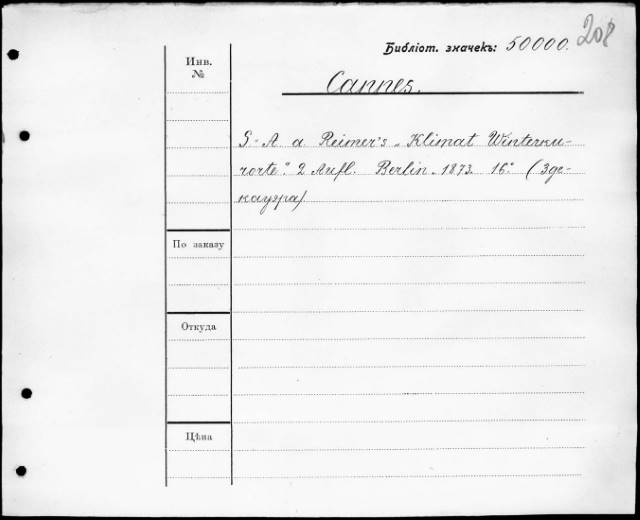 208
Библіот. значекъ: 50000.
Инв.
№
Cannes.
S-A a Reimer's „Klimat Winterku-
rorte". 2 Aufl. Berlin. 1873. 16°. (Зде-
кауэра)
По заказу
Откуда
Цѣна